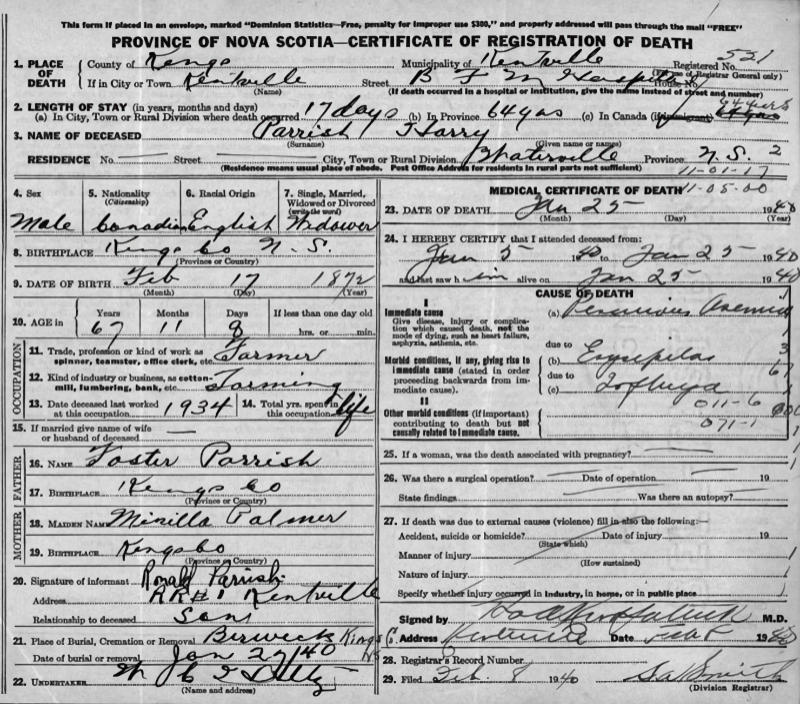 This form if placed in an envelope, marked "Dominion Statistics—Free, penalty for improper use $300," and properly addressed will pass through the mail "FREE"
PROVINCE OF NOVA SCOTIA—CERTIFICATE OF REGISTRATION OF DEATH
1. PLACE OF DEATH County of Kings Municipality of Kentville Registered No. 521
(For use of Registrar General only)
If in City or Town Kentville Street B F M Hospital House No.
(Name) (If death occurred in a hospital or institution, give the name instead of street and number)
2. LENGTH OF STAY (in years, months and days)
(a) In City, Town or Rural Division where death occurred 17 days (b) In Province 64 yrs (c) In Canada (if immigrant)
3. NAME OF DECEASED Parrish Harry
(Surname) (Given name or names)
RESIDENCE No. — Street — City, Town or Rural Division Province N.S. 2
(Residence means usual place of abode. Post Office Address for residents in rural parts not sufficient) 11-01-17
4. Sex Male
5. Nationality (Citizenship) Canadian
6. Racial Origin English
7. Single, Married, Widowed or Divorced (write the word) Widower
8. BIRTHPLACE Kings Co N.S.
(Province or Country)
9. DATE OF BIRTH Feb 17 1872
(Month) (Day) (Year)
10. AGE in Years Months Days If less than one day old
67 11 8 hrs. or min.
OCCUPATION
11. Trade, profession or kind of work as spinner, teamster, office clerk, etc. Farmer
12. Kind of industry or business, as cotton-mill, lumbering, bank, etc. Farming
13. Date deceased last worked at this occupation 1934 14. Total yrs. spent in this occupation life
15. If married give name of wife or husband of deceased —
FATHER
16. NAME Foster Parrish
17. BIRTHPLACE Kings Co
(Province or Country)
MOTHER
18. MAIDEN NAME Palmer
19. BIRTHPLACE Kings Co
(Province or Country)
20. Signature of informant Ronald Parrish
Address RR#1 Kentville
Relationship to deceased Son
21. Place of Burial, Cremation or Removal Berwick Kings NS
Date of burial or removal Jan 27/40
22. UNDERTAKER
(Name and address)
MEDICAL CERTIFICATE OF DEATH 11-05-00
23. DATE OF DEATH Jan 25 1940
(Month) (Day) (Year)
24. I HEREBY CERTIFY that I attended deceased from:
Jan 5 40 to Jan 25 1940
and last saw him alive on Jan 25 1940
CAUSE OF DEATH
I
Immediate cause
Give disease, injury or complication which caused death, not the mode of dying, such as heart failure, asphyxia, asthenia, etc.
(a) Pernicious Anemia
due to
Morbid conditions, if any, giving rise to immediate cause (stated in order proceeding backwards from immediate cause).
(b) Erysipelas
due to
(c)
011-6
II
Other morbid conditions (if important) contributing to death but not causally related to immediate cause.
071-1
25. If a woman, was the death associated with pregnancy?
26. Was there a surgical operation? Date of operation 19
State findings Was there an autopsy?
27. If death was due to external causes (violence) fill in also the following:—
Accident, suicide or homicide? Date of injury 19
(State which)
Manner of injury
(How sustained)
Nature of injury
Specify whether injury occurred in industry, in home, or in public place
Signed by M.D.
Address Kentville Date 1940
28. Registrar's Record Number
29. Filed Feb. 8 1940 Smith
(Division Registrar)